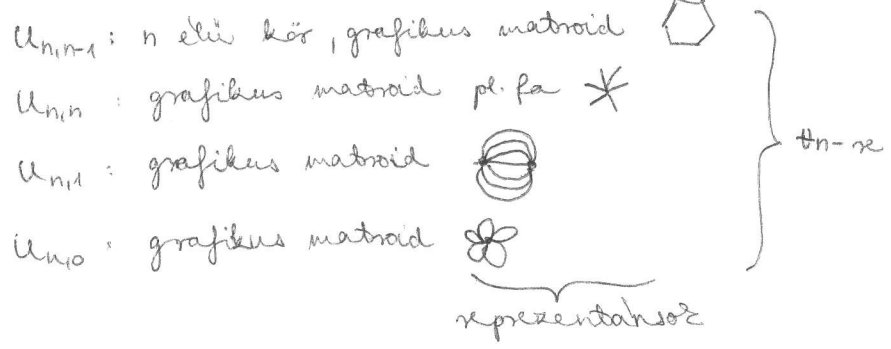 U_{n,n-1} : n élű kör, grafikus matroid
U_{n,n} : grafikus matroid pl. fa
U_{n,1} : grafikus matroid
U_{n,0} : grafikus matroid
∀n-re
reprezentánsok